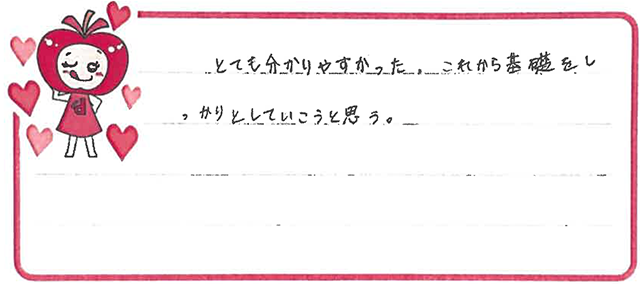 とても分かりやすかった。これから基礎をし
っかりとしていこうと思う。